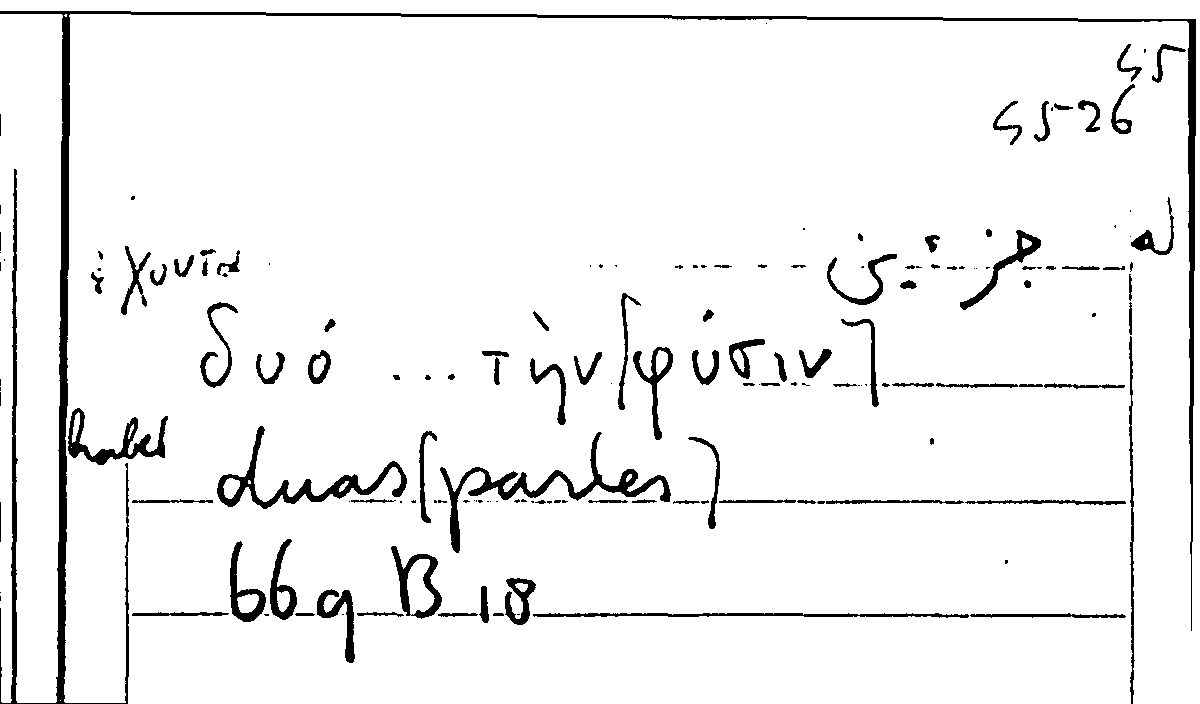 45
45-26
له جزئين
ἔχοντα
δυό ... τὴν [φύσιν]
habet
duas [partes]
669 B 18